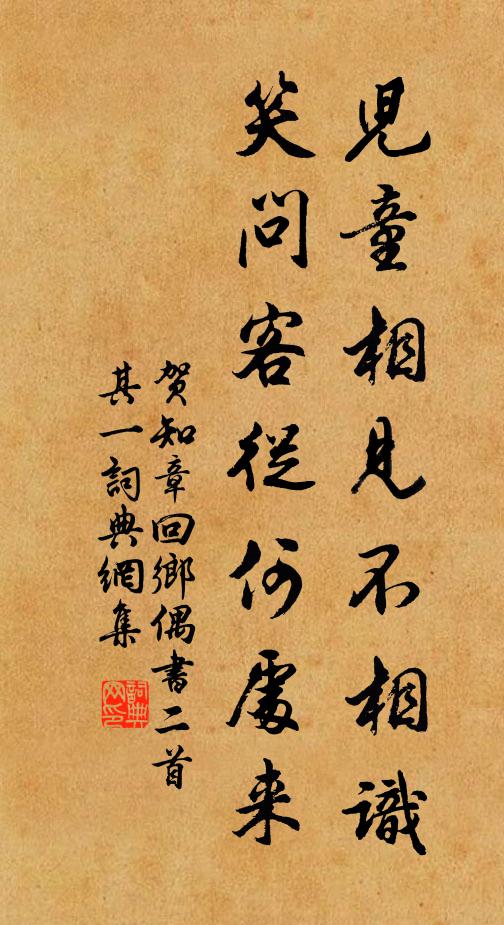 兒童相見不相識
笑問客從何處来
賀知章回鄉偶書二首
其一詞典網集
詞典网印